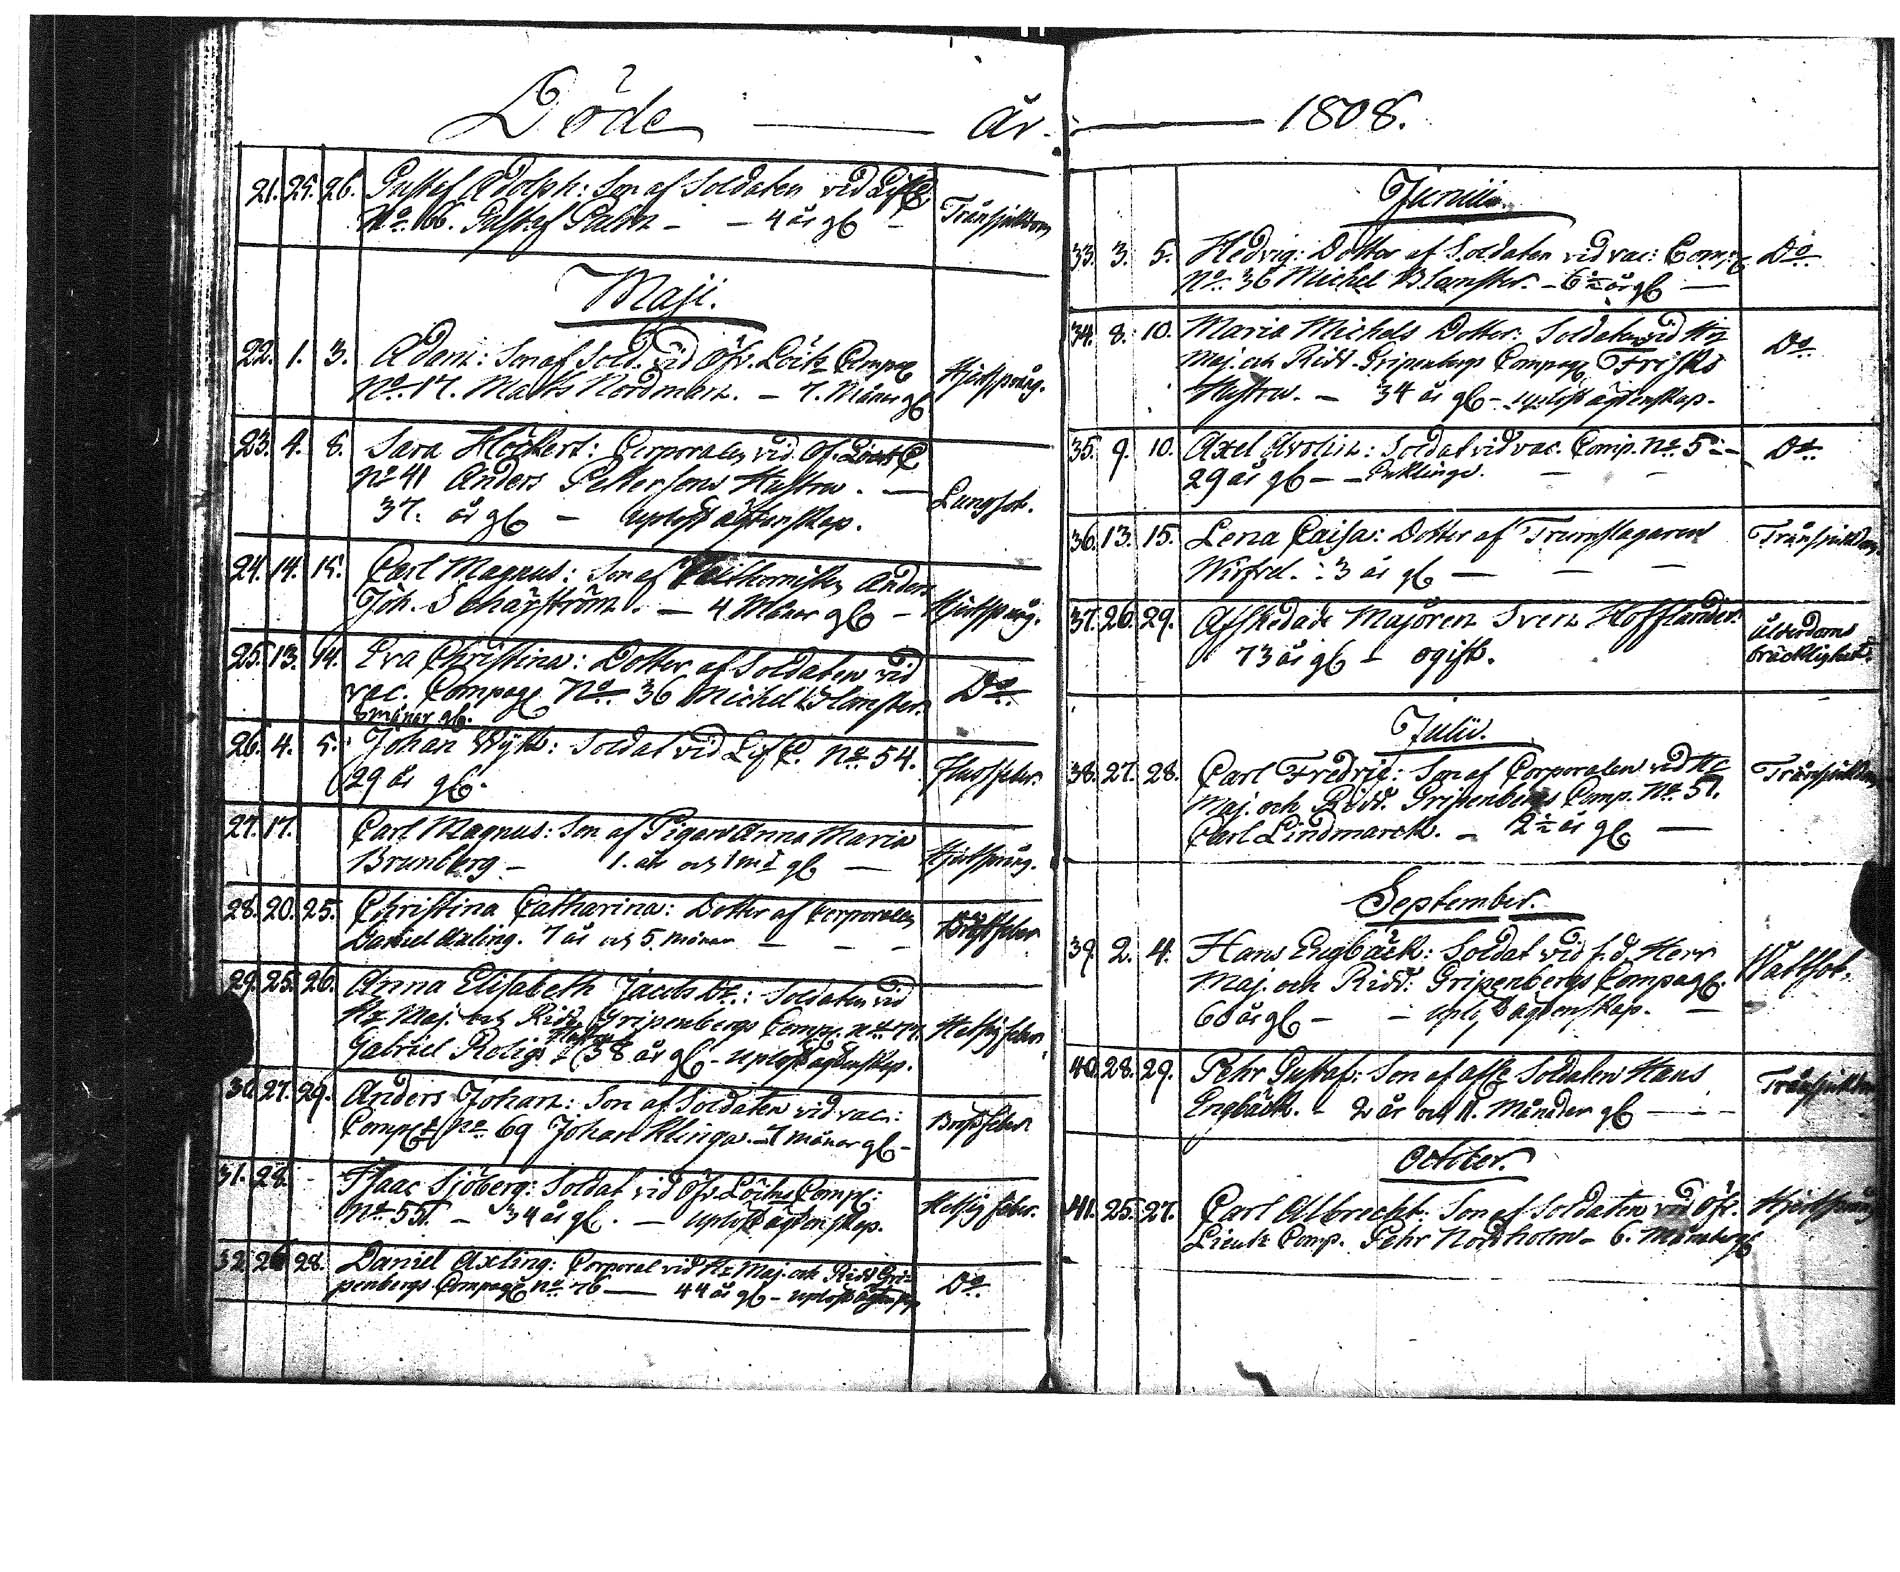 Döde — år
21. 25. 26. Gustaf Adolph: Son af Soldaten vid Lif C
No 66. Gustaf Palm - - 4 år gl -
Maji.
22. 1. 3. Adam: Son af Sold. vid Öfv. Löits Compag
No 17. Matts Nordman. - 7. Månar gl Hjertsprång.
23. 4. 8. Sara Höckert: Corporalen vid Öf. Löits C
No 41 Anders Pettersons Hustru. —
37. år gl - uplöst ägtenskap. Lungsot.
24. 14. 15. Carl Magnus: Son af Anders
Joh. Schärström. - 4 Månar gl - Hjertsprång.
25. 13. 14. Eva Christina: Dotter af Soldaten vid
vac. Compag No 36 Michel Blomster. Do.
3 månar gl.
26. 4. 5. Johan Wykt: Soldat vid Lif C. No 54.
29 år gl.
27. 17. Carl Magnus: Son af Pigan Anna Maria
Brunberg - 1. år och 1 md gl — Hjertsprång.
28. 20. 25. Christina Catharina: Dotter af Corporalen
Daniel Axling. 7 år och 5. månar - - - Bröstfeber
29. 25. 26. Anna Elisabeth Jacobs Dr.: Soldaten vid
Hr Maj. och Ridd. Gripenbergs Comp. No 77.
Gabriel Religs Hustru 38 år gl - uplöst ägtenskap. Hetsig feber
30. 27. 29. Anders Johan: Son af Soldaten vid vac:
Comp. No 69 Johan Klinga - 7 månar gl - Bröstfeber
31. 28. - Isaac Sjöberg: Soldat vid Öfv. Löits Comp:
No 551. - 34 år gl. - uplöst ägtenskap. Hetsig feber.
32. 26 28. Daniel Axling: Corporal vid Hr Maj. och Ridd Gri-
penbergs Compag No 76 — 44 år gl - uplöst ägtenskap Do.
— 1808.
Junii.
33. 3. 5. Hedvig: Dotter af Soldaten vid vac: Comp. Do
No. 36 Michel Blomster. - 6½ år gl —
34. 8. 10. Maria Michels Dotter: Soldaten vid Hr
Maj. och Ridd. Gripenbergs Compag Frisks Do.
Hustru. - 34 år gl - uplöst ägtenskap.
35. 9. 10. Axel Avolin: Soldat vid vac. Comp. No 5 - Do.
29 år gl - - Enklinge. - -
36. 13. 15. Lena Caisa: Dotter af Trumslagaren
Wirfvel. : 3 år gl - - -
37. 26. 29. Afskedade Majoren Sven Hofflander. Ålderdoms
73 år gl - ogift. bräcklighet.
Julii.
38. 27. 28. Carl Fredric: Son af Corporalen vid Hr
Maj. och Ridd. Gripenbergs Comp. No 57.
Carl Lindmarck. - 2½ år gl —
September.
39. 2. 4. Hans Engbäck: Soldat vid f.d. Herr
Maj. och Ridd: Gripenbergs Compag. Wattsot.
60 år gl - - ägtenskap. -
40. 28. 29. Pehr Gustaf: Son af afsk. Soldaten Hans
Engbäck. - 2 år och 11. Månader gl - - -
October.
41. 25. 27. Carl Albrecht. Son af Soldaten vid Öfv. Hjertsprång
Lieutz Comp. Pehr Nordholm - 6. Månader gl